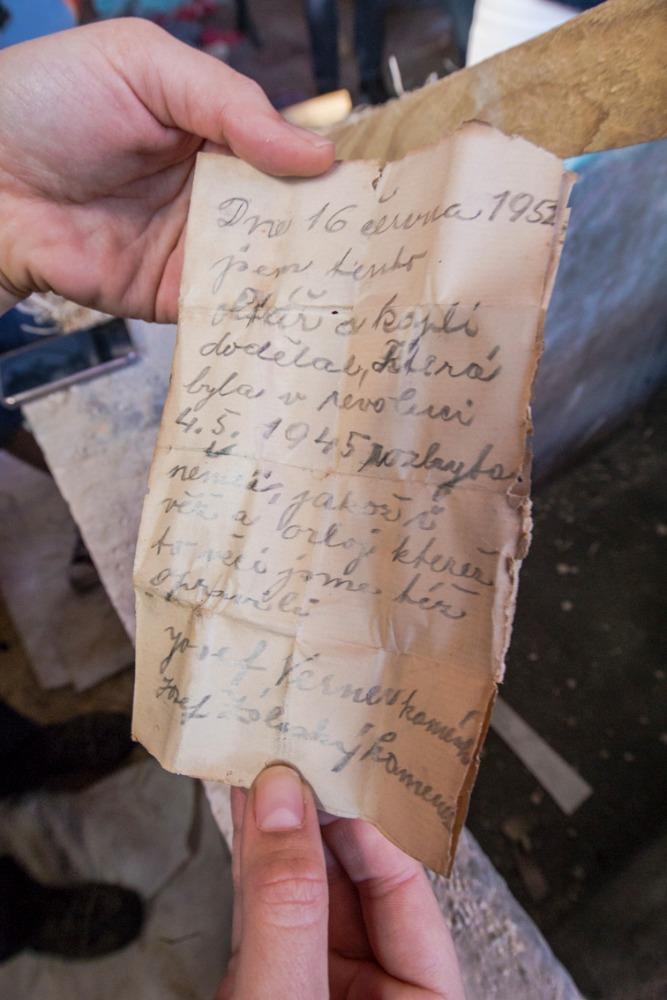 Dne 16 června 1952
jsem tento
oltář a kapli
dodělal, která
byla v revoluci
4.5. 1945 rozbyta
němci, jakož i
věž a orloj kteréž
to věci jsme též
opravili
Josef Verner
Josef Záleský